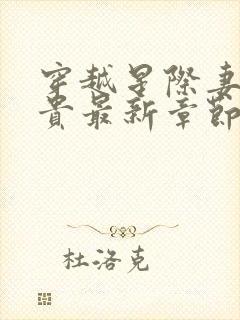 穿越星際妻
貴最新章節
杜洛克